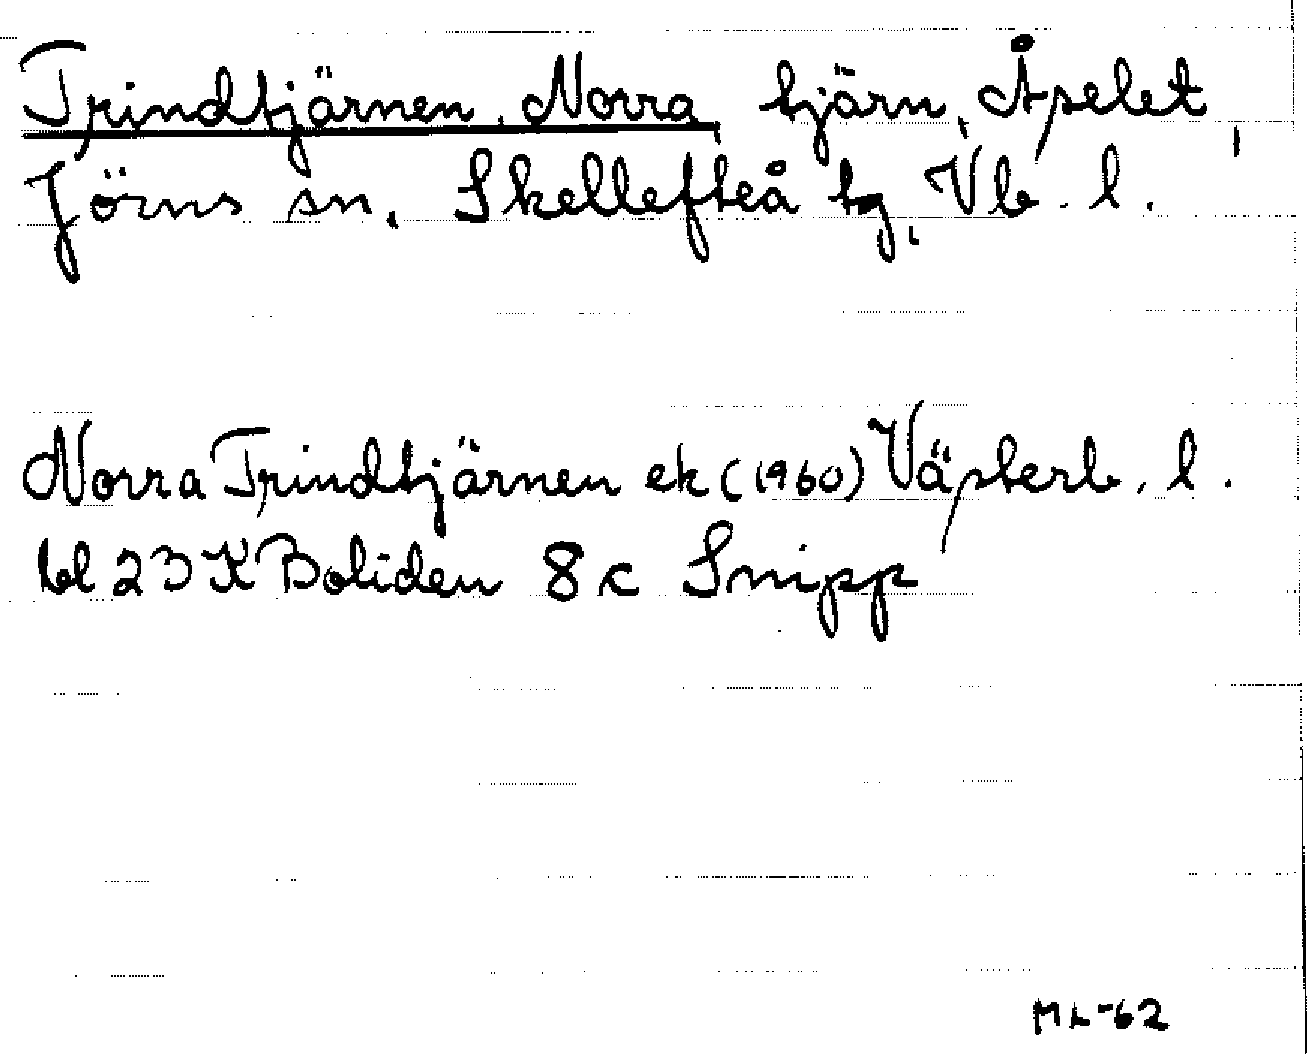 Trindtjärnen, Norra, tjärn, Åselet,
Jörns sn, Skellefteå tg, Vb. l.
Norra Trindtjärnen ek (1960) Västerb. l.
bl 23 K Boliden 8 c Snipp
ML-62